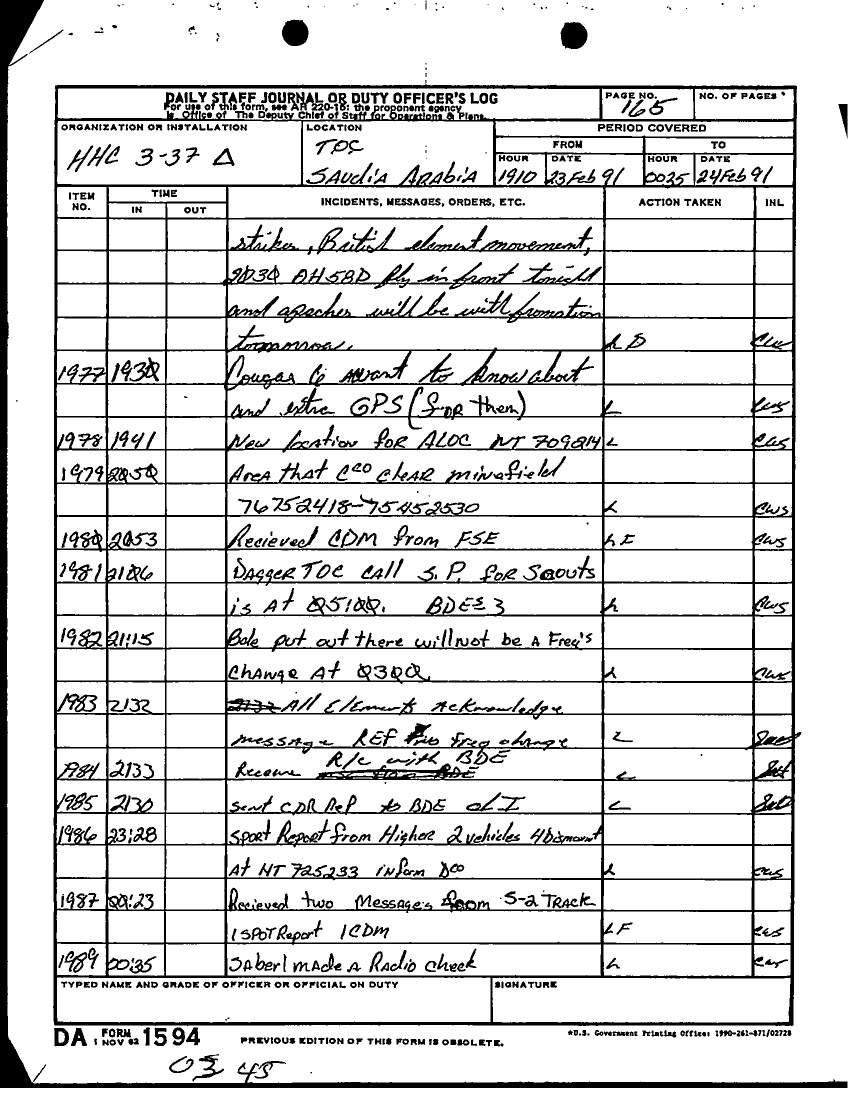 DAILY STAFF JOURNAL OR DUTY OFFICER'S LOG
For use of this form, see AR 220-15: the proponent agency
is Office of The Deputy Chief of Staff for Operations & Plans.
PAGE NO. 165
NO. OF PAGES
ORGANIZATION OR INSTALLATION
HHC 3-37 Δ
LOCATION
TOC
SAUdiA ARAbiA
PERIOD COVERED
FROM TO
HOUR DATE HOUR DATE
1910 23 Feb 91 0035 24 Feb 91
ITEM NO. TIME IN OUT INCIDENTS, MESSAGES, ORDERS, ETC. ACTION TAKEN INL
strikes, British element movement,
2030 AH58D fly in front tonight
and apaches will be with fromation
L D
1977 1930 Cougar 6 want to know about
and extra GPS (for them) L cws
1978 1941 New location for ALOC NT 709814 L cws
1979 2050 Area that clear minefield
76752418-75452530 L cws
1980 2053 Recieved CDM from FSE L E cws
1981 2106 DAGGER TOC CALL S.P. for Scouts
is At 0510. L cws
1982 21:15 Bde put out there will not be A Freq's
change At 0300. L cws
1983 2132 All Elements Acknowledge
message REF no freq change L
1984 2133 R/c with BDE L
1985 2130 sent CDR Rep to BDE L
1986 23:28 Spot Report from Higher 2 vehicles 4 Dismount
At NT 725233 inform L cws
1987 00:23 Recieved two Message's from S-2 TRACK
1 SPOT Report 1 CDM L F cws
1989 00:35 Saber 1 made A Radio check L
TYPED NAME AND GRADE OF OFFICER OR OFFICIAL ON DUTY
SIGNATURE
DA FORM 1 NOV 62 1594
PREVIOUS EDITION OF THIS FORM IS OBSOLETE.
*U.S. Government Printing Office: 1990-261-871/02728
45